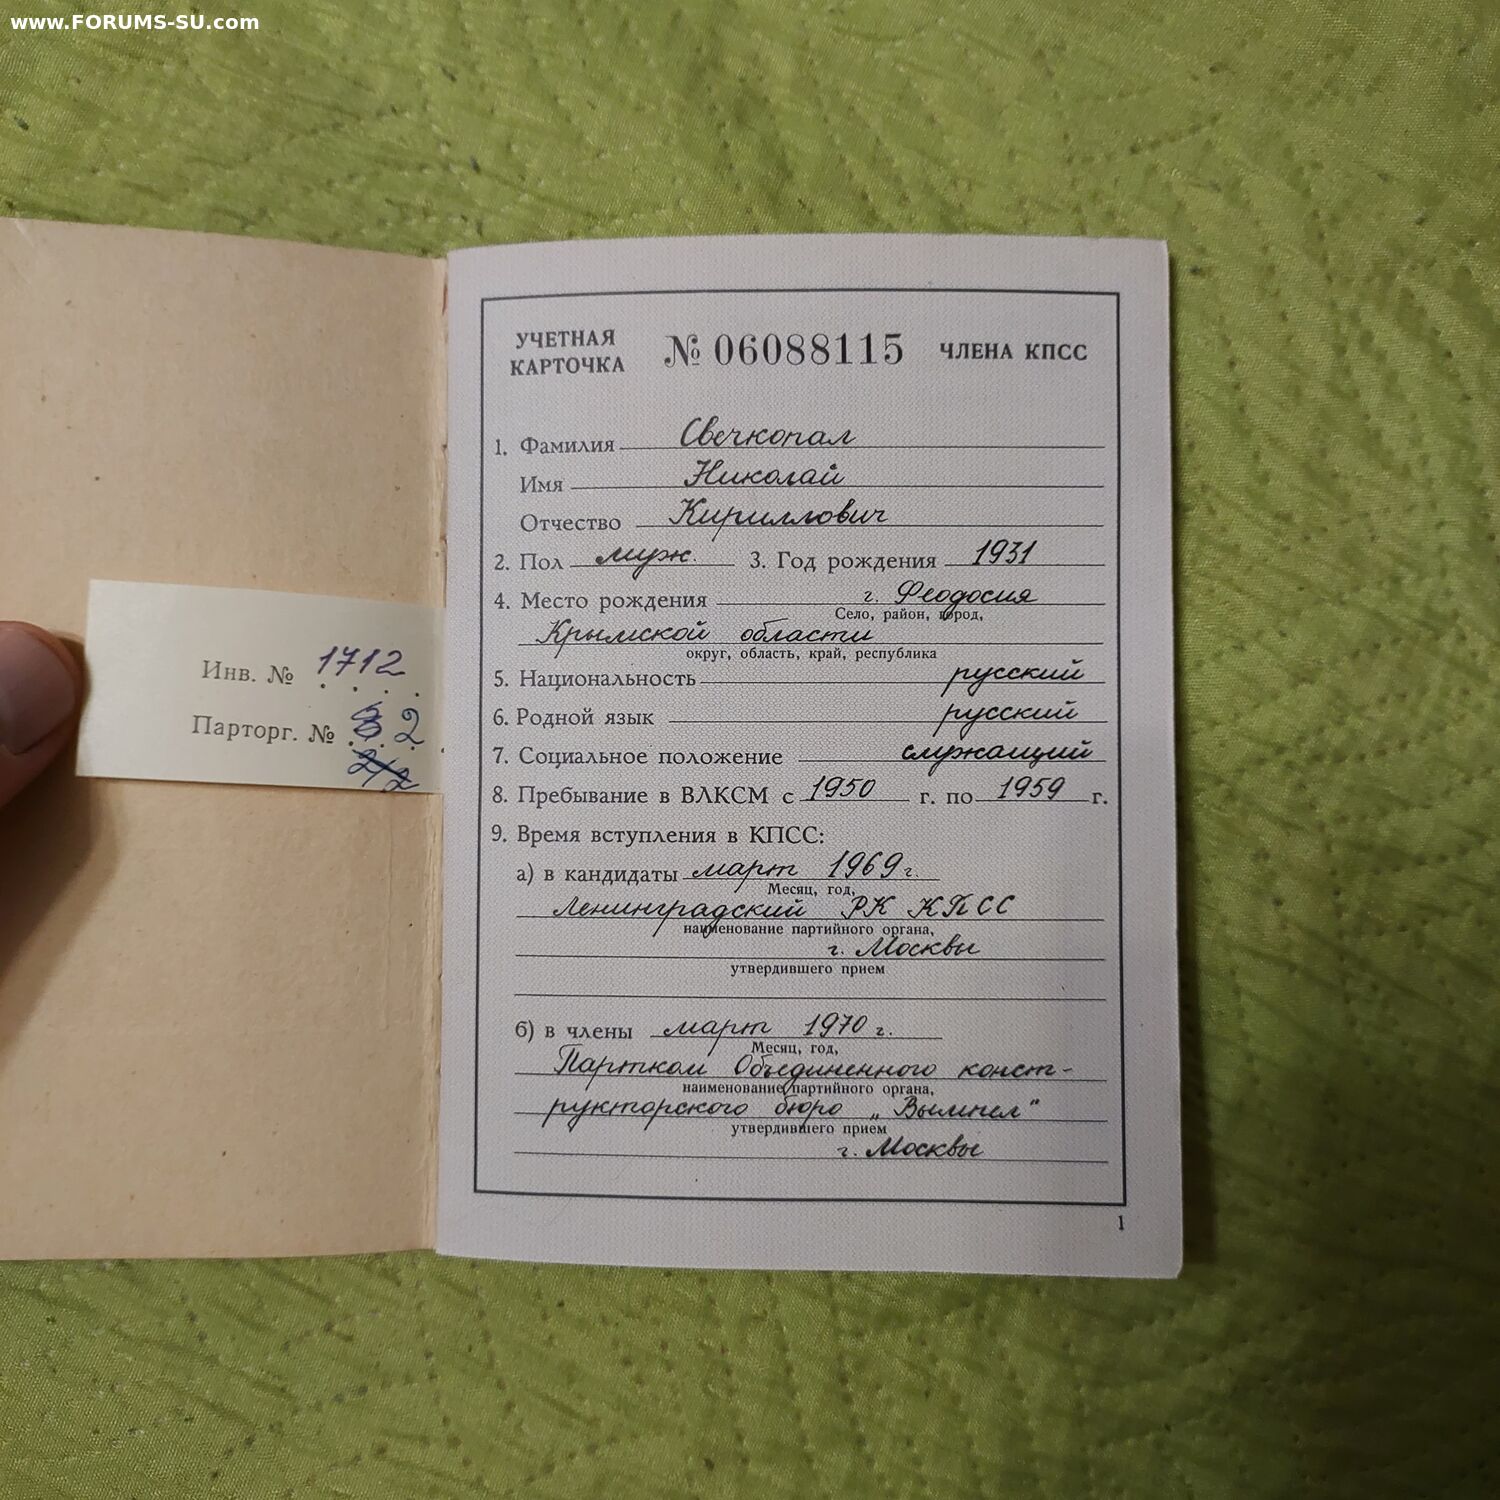 www.FORUMS-SU.com
Инв. № 1712
Парторг. № 2
УЧЕТНАЯ
КАРТОЧКА
№ 06088115
ЧЛЕНА КПСС
1. Фамилия Свечкопал
Имя Николай
Отчество Кириллович
2. Пол муж. 3. Год рождения 1931
4. Место рождения г. Феодосия
Село, район, город,
Крымской области
округ, область, край, республика
5. Национальность русский
6. Родной язык русский
7. Социальное положение служащий
8. Пребывание в ВЛКСМ с 1950 г. по 1959 г.
9. Время вступления в КПСС:
а) в кандидаты март 1969 г.
Месяц, год,
Ленинградский РК КПСС
наименование партийного органа,
г. Москвы
утвердившего прием
б) в члены март 1970 г.
Месяц, год,
Партком Объединенного конст-
наименование партийного органа,
рукторского бюро „Вымпел"
утвердившего прием
г. Москвы
1